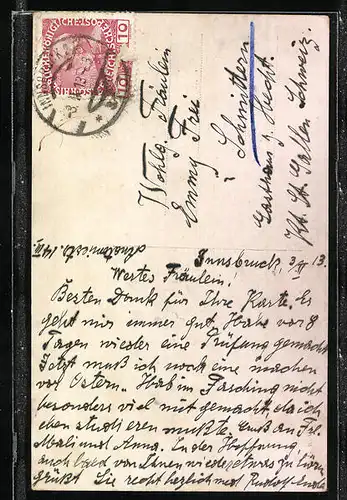 10
INNSBRUCK
Wohlg. Fräulein
Emmy Frei
Schmittern
Gasthaus z. Hecht
Kt. St. Gallen Schweiz.
Innsbruck, 3/II 13.
Wertes Fräulein!
Besten Dank für Ihre Karte. Es
geht mir immer gut. Habe vor 8
Tagen wieder eine Prüfung gemacht
Jetzt muß ich noch eine machen
vor Ostern. Hab im Fasching nicht
besonders viel mit gemacht, da ich
eben studieren mußte. Gruß an Frl.
Mali und Anna. In der Hoffnung
auch bald von Ihnen wieder etwas zu hören
grüßt Sie recht herzlich mit Rudolf